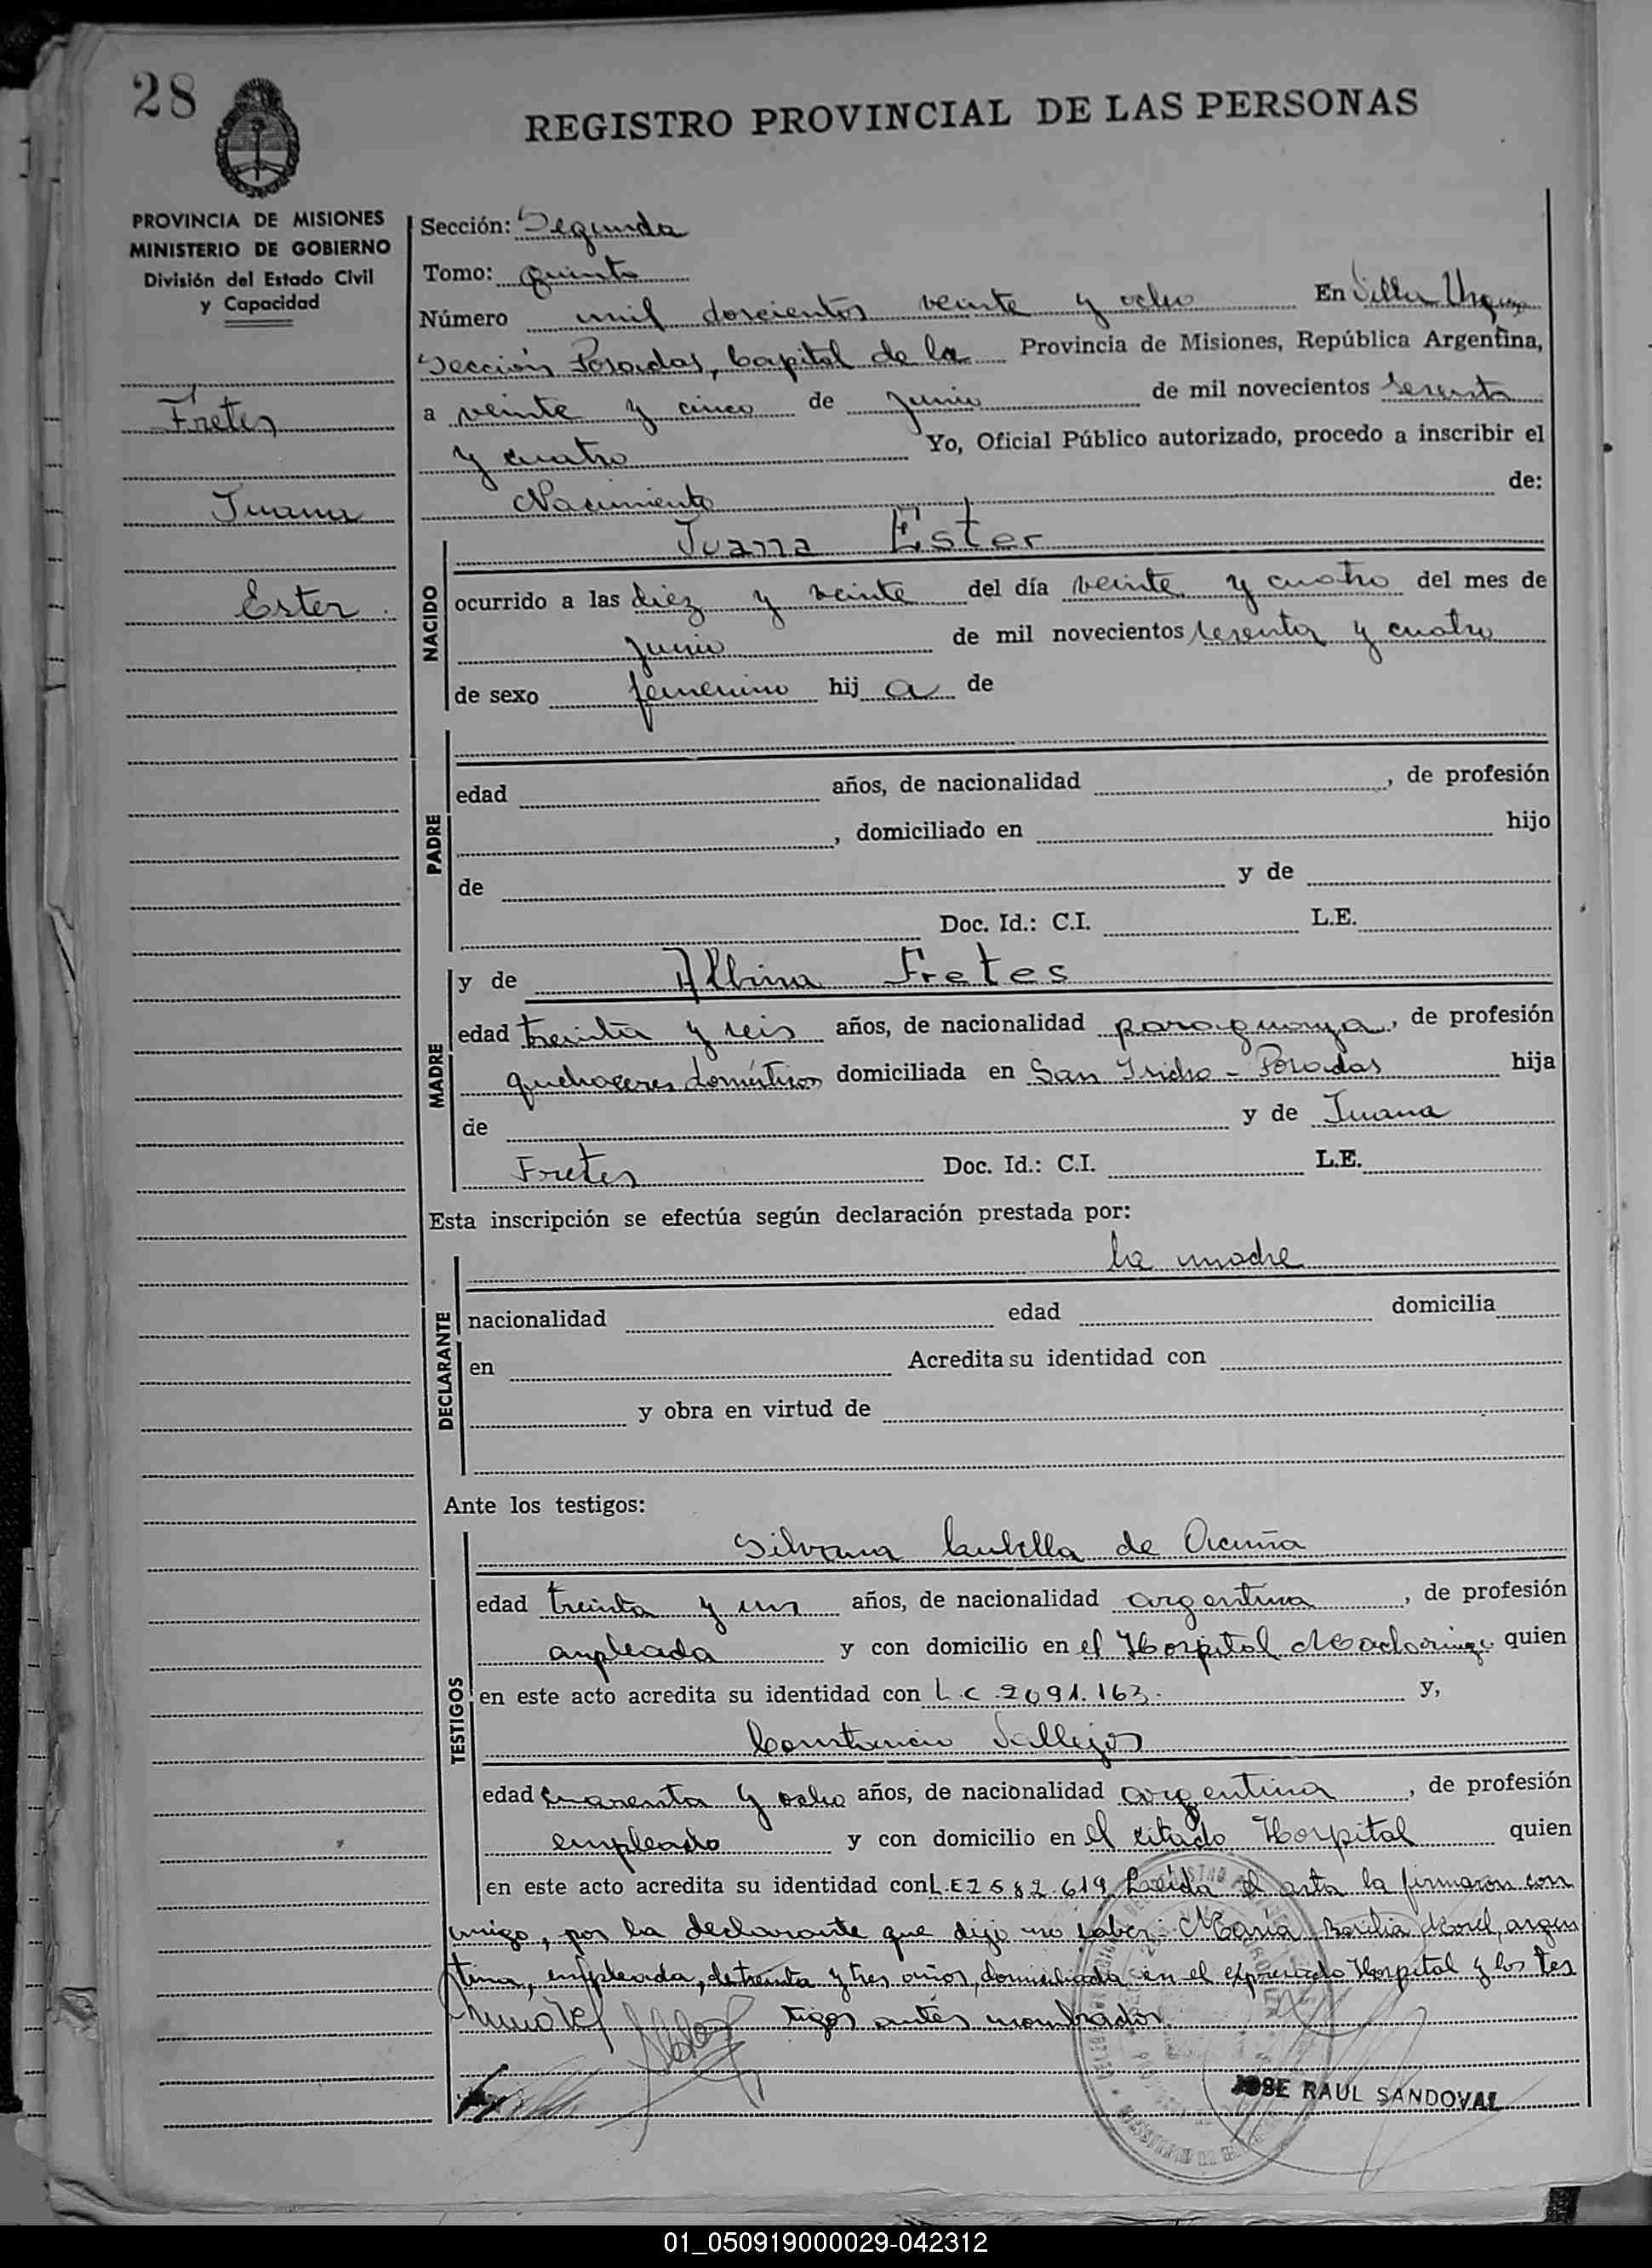 28
REGISTRO PROVINCIAL DE LAS PERSONAS
PROVINCIA DE MISIONES
MINISTERIO DE GOBIERNO
División del Estado Civil
y Capacidad
Fretes
Juana
Ester
Sección: Segunda
Tomo: Quinto
Número mil doscientos veinte y ocho En Villa Urquiza
Sección Posadas, Capital de la Provincia de Misiones, República Argentina,
a veinte y cinco de junio de mil novecientos sesenta
y cuatro Yo, Oficial Público autorizado, procedo a inscribir el
Nacimiento de:
NACIDO
Juana Ester
ocurrido a las diez y veinte del día veinte y cuatro del mes de
junio de mil novecientos sesenta y cuatro
de sexo femenino hij a de
PADRE
edad años, de nacionalidad , de profesión
, domiciliado en hijo
de y de
Doc. Id.: C.I. L.E.
MADRE
y de Albina Fretes
edad treinta y seis años, de nacionalidad paraguaya, de profesión
quehaceres domésticos domiciliada en San Isidro - Posadas hija
de y de Juana
Fretes Doc. Id.: C.I. L.E.
Esta inscripción se efectúa según declaración prestada por:
DECLARANTE
la madre
nacionalidad edad domicilia
en Acredita su identidad con
y obra en virtud de
Ante los testigos:
TESTIGOS
Silvana de Acuña
edad treinta y un años, de nacionalidad argentina, de profesión
empleada y con domicilio en el Hospital Madariaga quien
en este acto acredita su identidad con L.C. 2691.163. y,
Constancio Vallejos
edad cuarenta y ocho años, de nacionalidad argentina, de profesión
empleado y con domicilio en el citado Hospital quien
en este acto acredita su identidad con L.E 2582.619 Leída el acta la firmaron con
migo, por la declarante que dijo no saber: María Basilia Morel, argen
tina, empleada, de treinta y tres años, domiciliada en el expresado Hospital y los tes
tigos antes nombrados.
JOSE RAUL SANDOVAL
01_050919000029-042312